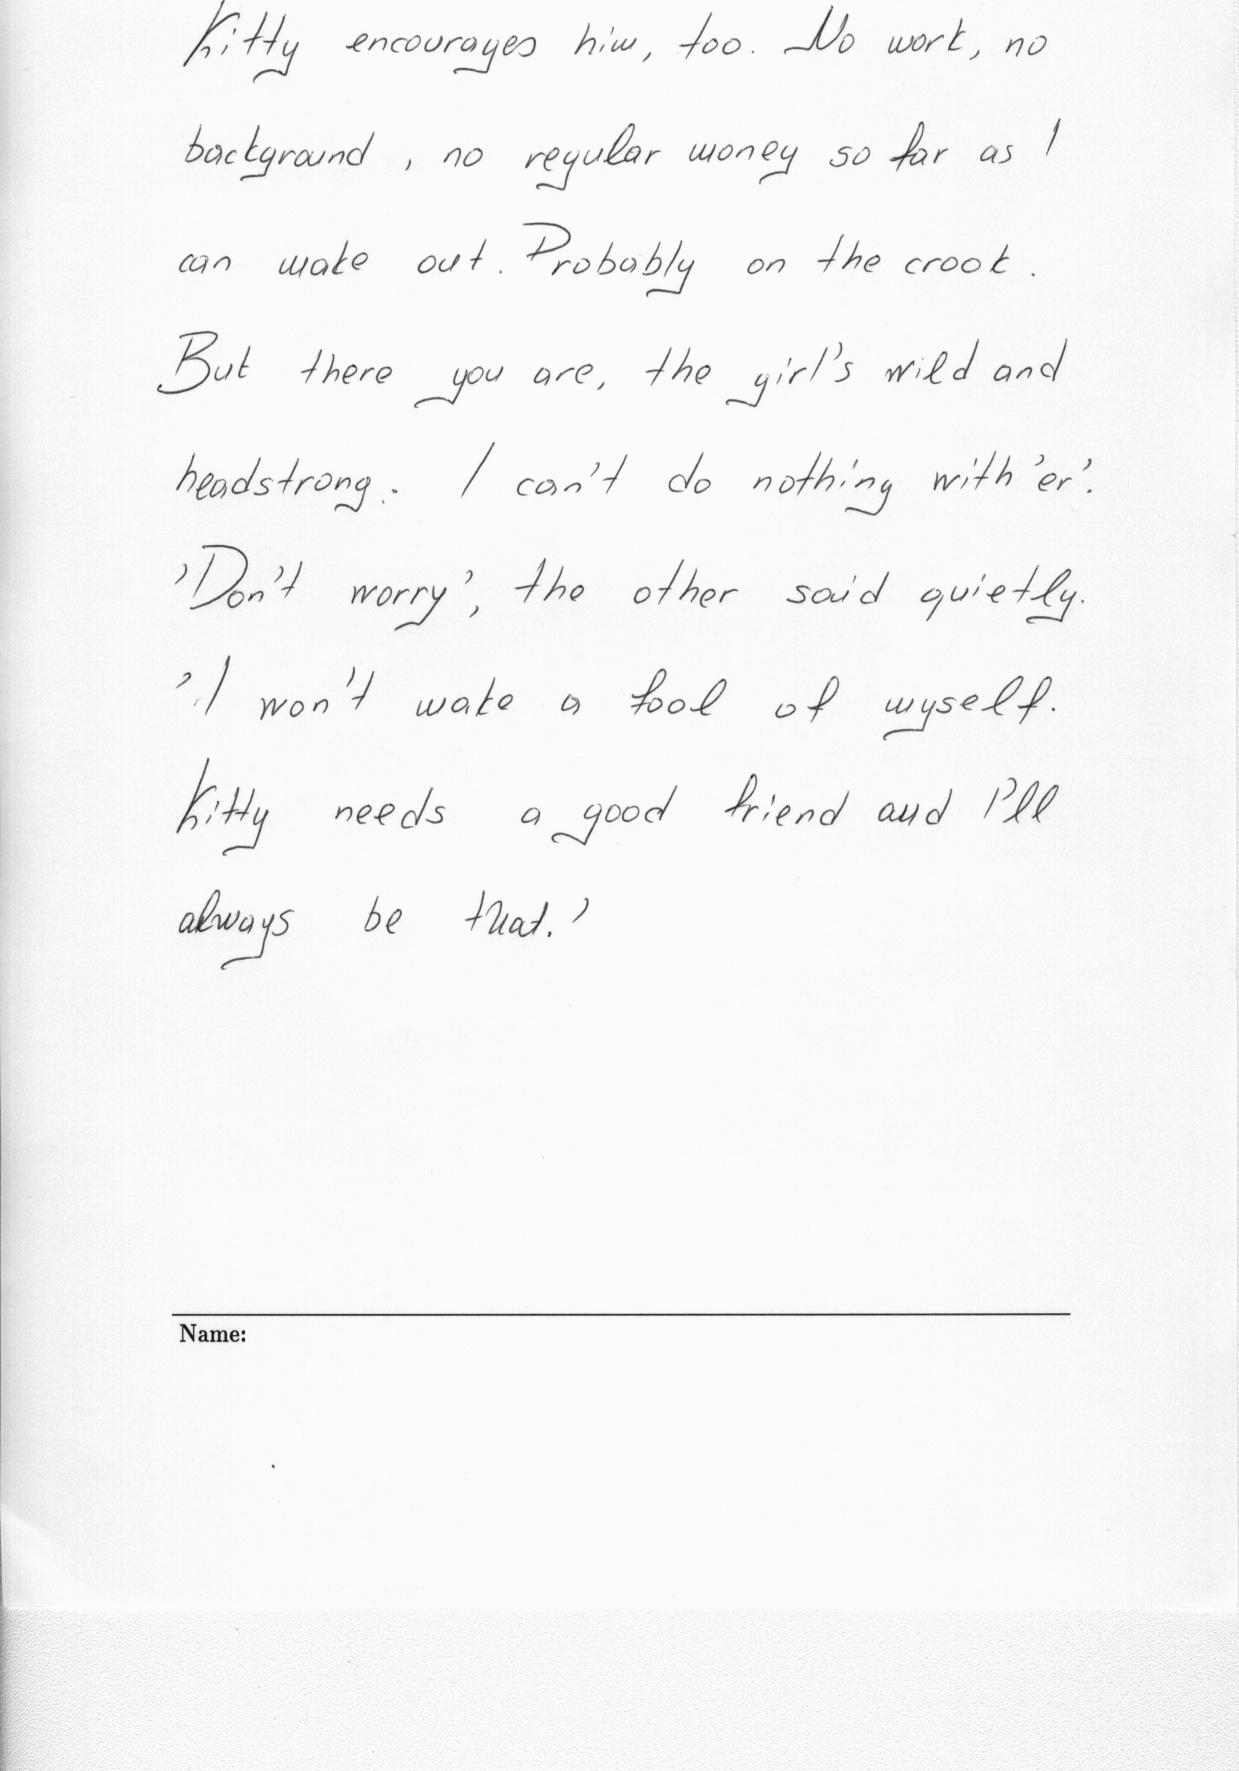 Kitty encourages him, too. No work, no
background, no regular money so far as I
can make out. Probably on the crook.
But there you are, the girl's wild and
headstrong. I can't do nothing with 'er'.
'Don't worry', the other said quietly.
'I won't make a fool of myself.
Kitty needs a good friend and I'll
always be that.'
Name: